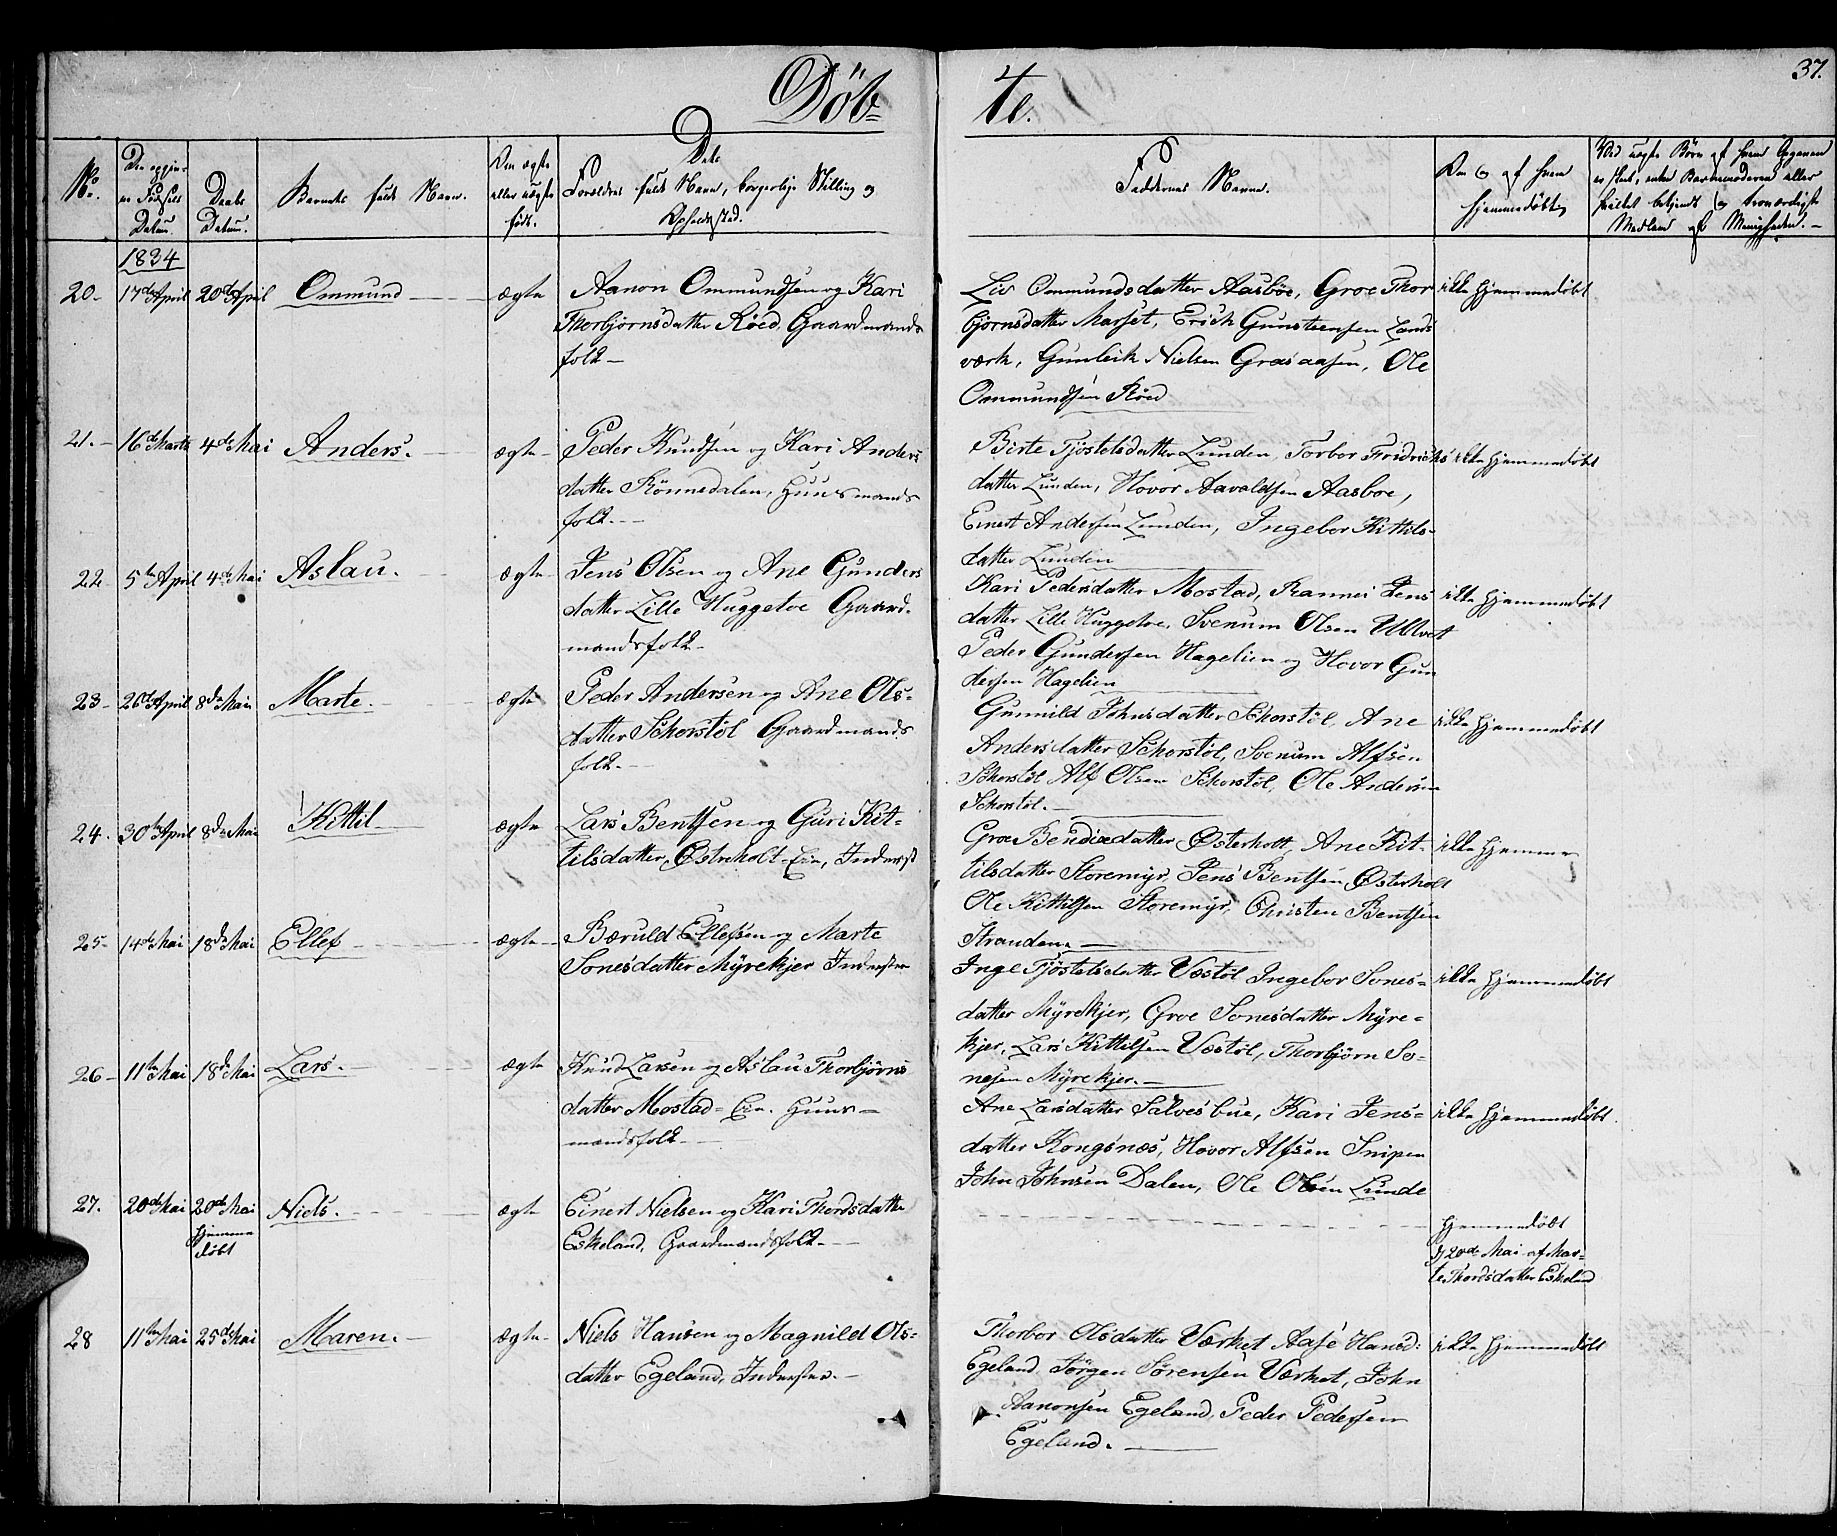 Döb=
te.
37.
No.
Den opgivne Fødsels Datum.
Daabs Datum.
Barnets fulde Navn.
Om ægte eller uægte født.
De
Forældres fulde Navn, borgerlige Stilling og
Opholdssted.
Faddernes Navne.
Om og af hvem
hjemmedøbt
Ved uægte Børn af hvem Opgaven
er skeet, enten Barnemoderen eller
hvilket bekjendt og troværdigt
Medlem af Menigheden.
1834
20. 17de April 20de April Ommund ægte Aanon Ommundsen og Kari
Thorbjörnsdatter Röed, Gaardmands
folk
Liv Ommundsdatter Aasböe, Groe Thor
björnsdatter Marset, Erich Gunsteensen Lands
værk, Gunleik Nielsen Graasaasen, Ole
Ommundsen Röed
ikke hjemmedøbt
21. 16de Marts 4de Mai Anders. ægte Peder Knudsen og Kari Anders
datter Rönnedalen, Huusmands
folk.
Birte Tjöstelsdatter Lunden, Torbor Fredrichs
datter Lunden, Hovor Aavaldsen Aasboe,
Einert Andersen Lunden, Ingebor Kittils-
datter Lunden
ikke hjemmedøbt
22. 5te April 4de Mai Aslau. ægte Jens Olsen og Ane Gunders
datter Lille Huggetoe Gaard-
mandsfolk
Kari Pedersdatter Mostad, Rannei Jens
datter Lille Huggetoe, Svenum Olsen Ulltvet
Peder Gundersen Hagelien og Hovor Gun
dersen Hagelien
ikke hjemmedøbt
23. 26de April 8de Mai Marte. ægte Peder Andersen og Ane Ols-
datter Schorstöl Gaardmands
folk.
Gunnild Johnsdatter Schorstöl, Ane
Andersdatter Schorstöl, Svenum Alfsen
Schorstöl Alf Olsen Schorstöl, Ole Andersen
Schorstöl.
ikke hjemmedøbt
24. 30te April 8de Mai Kittil ægte Lars Bentsen og Guri Kit-
tilsdatter, Østreholt-Eie, Inderst
Groe Bendixdatter Østerholt, Ane Kit-
tilsdatter Storemyr, Jens Bentsen Østerholt
Ole Kittilsen Storemyr, Christen Bentsen
Stranden.
ikke hjemme
25. 14de Mai 18de Mai Ellef ægte Bæruld Ellefsen og Marte
Sonesdatter Myrekjer Inderster
Inge Tjöstelsdatter Vestöl Ingebor Sones-
datter Myrekjer, Groe Sonesdatter Myre-
kjer, Lars Kittilsen Vestöl, Thorbjörn So-
nesen Myrekjer.
ikke hjemmedøbt
26. 11te Mai 18de Mai Lars. ægte Knud Larsen og Aslau Thorbjörns
datter Mostad-Eie. Huus-
mandsfolk
Ane Larsdatter Salvesbue, Kari Jens-
datter Kongsnæs, Hovor Alfsen Snipen
John Johnsen Dalen, Ole Olsen Lunde
ikke hjemmedøbt.
27. 20de Mai 20de Mai
hjemme
døbt
Niels. ægte Einert Nielsen og Kari Thordsdatter
Eskeland, Gaardmandsfolk
hjemmedøbt
d/20de Mai af Mar-
te Thordsdatter Eskeland
28 11te Mai 25de Mai Maren. ægte Niels Hansen og Magnild Ols-
datter Egeland, Inderster.
Thorbor Olsdatter Værket Aase Hansd:
Egeland, Jörgen Sörensen Værket, John
Aanonsen Egeland, Peder Pedersen
Egeland.
ikke hjemmedøbt